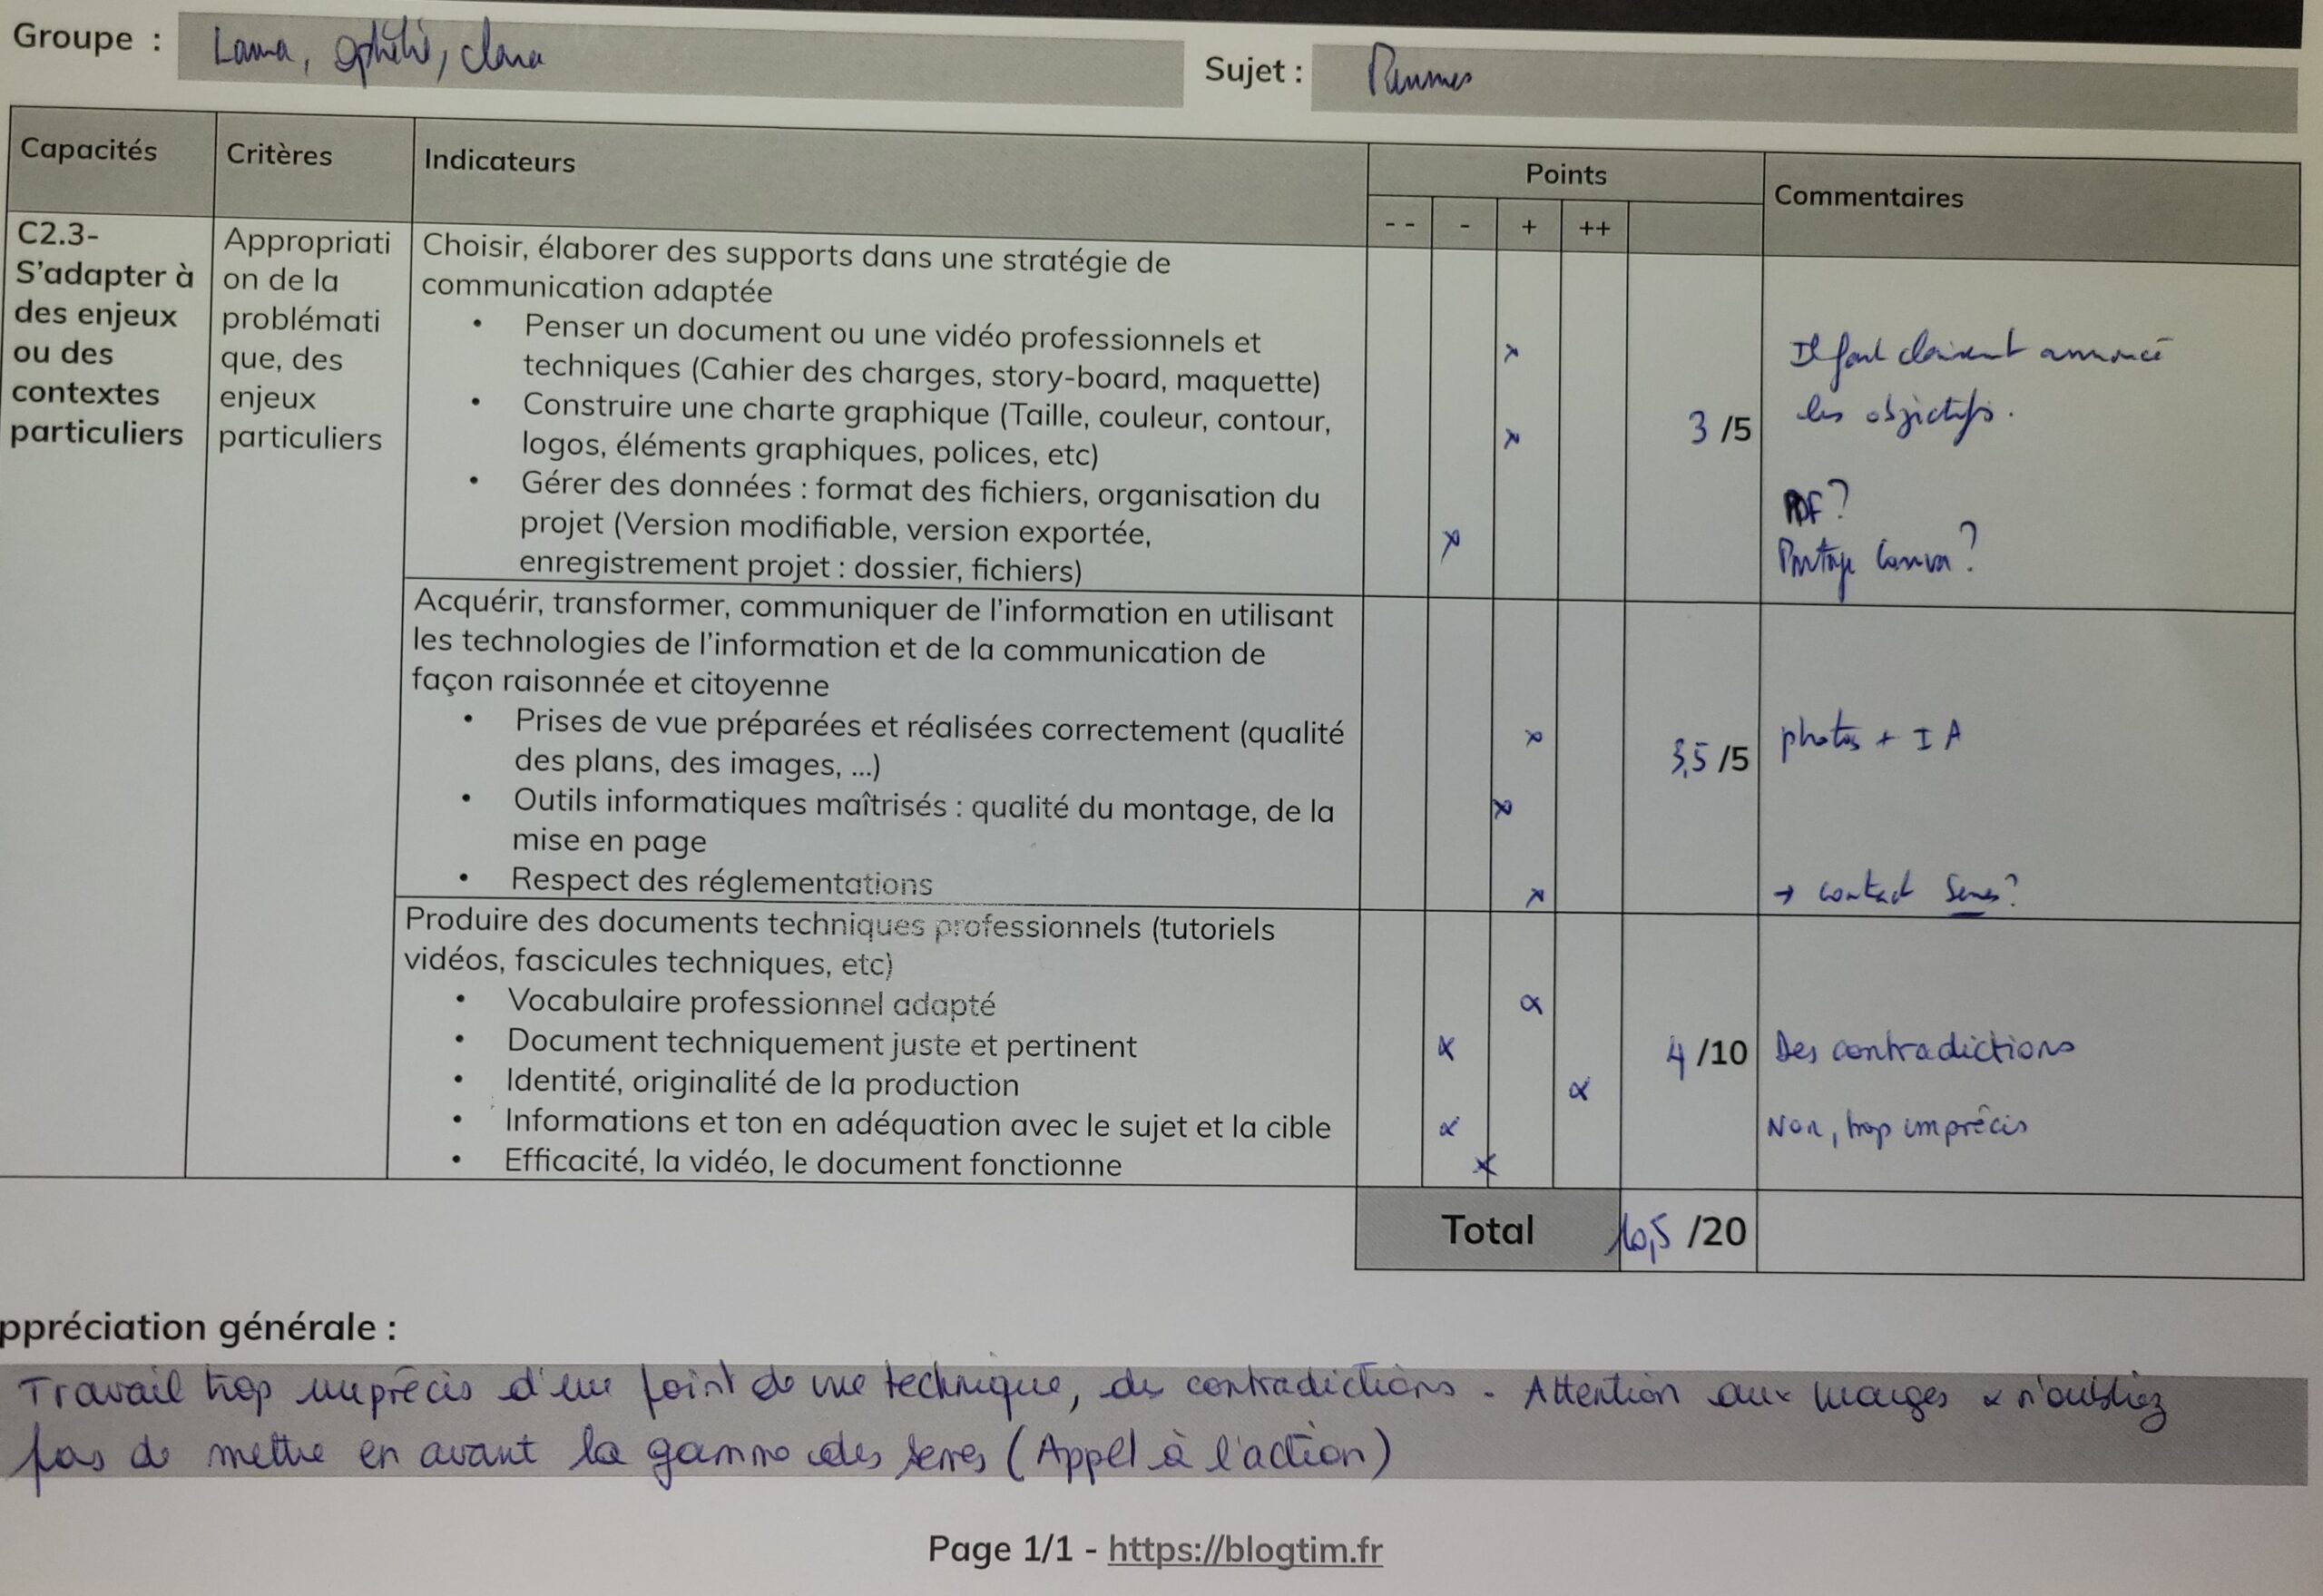 Groupe :
Ophélie, Clara
Sujet :
Capacités Critères Indicateurs Points Commentaires
-- - + ++
C2.3-
S'adapter à
des enjeux
ou des
contextes
particuliers
Appropriati
on de la
problémati
que, des
enjeux
particuliers
Choisir, élaborer des supports dans une stratégie de
communication adaptée
• Penser un document ou une vidéo professionnels et
techniques (Cahier des charges, story-board, maquette)
• Construire une charte graphique (Taille, couleur, contour,
logos, éléments graphiques, polices, etc)
• Gérer des données : format des fichiers, organisation du
projet (Version modifiable, version exportée,
enregistrement projet : dossier, fichiers)
3 /5
Il faut clairement annoncé
les objectifs.
PDF ?
Partage Canva ?
Acquérir, transformer, communiquer de l'information en utilisant
les technologies de l'information et de la communication de
façon raisonnée et citoyenne
• Prises de vue préparées et réalisées correctement (qualité
des plans, des images, ...)
• Outils informatiques maîtrisés : qualité du montage, de la
mise en page
• Respect des réglementations
3,5 /5
photos + IA
→ contact Serres ?
Produire des documents techniques professionnels (tutoriels
vidéos, fascicules techniques, etc)
• Vocabulaire professionnel adapté
• Document techniquement juste et pertinent
• Identité, originalité de la production
• Informations et ton en adéquation avec le sujet et la cible
• Efficacité, la vidéo, le document fonctionne
4 /10
Des contradictions
Non, trop imprécis
Total 10,5 /20
ppréciation générale :
Travail trop imprécis d'un point de vue technique, des contradictions. Attention aux marges & n'oubliez
pas de mettre en avant la gamme des serres (Appel à l'action)
Page 1/1 - https://blogtim.fr